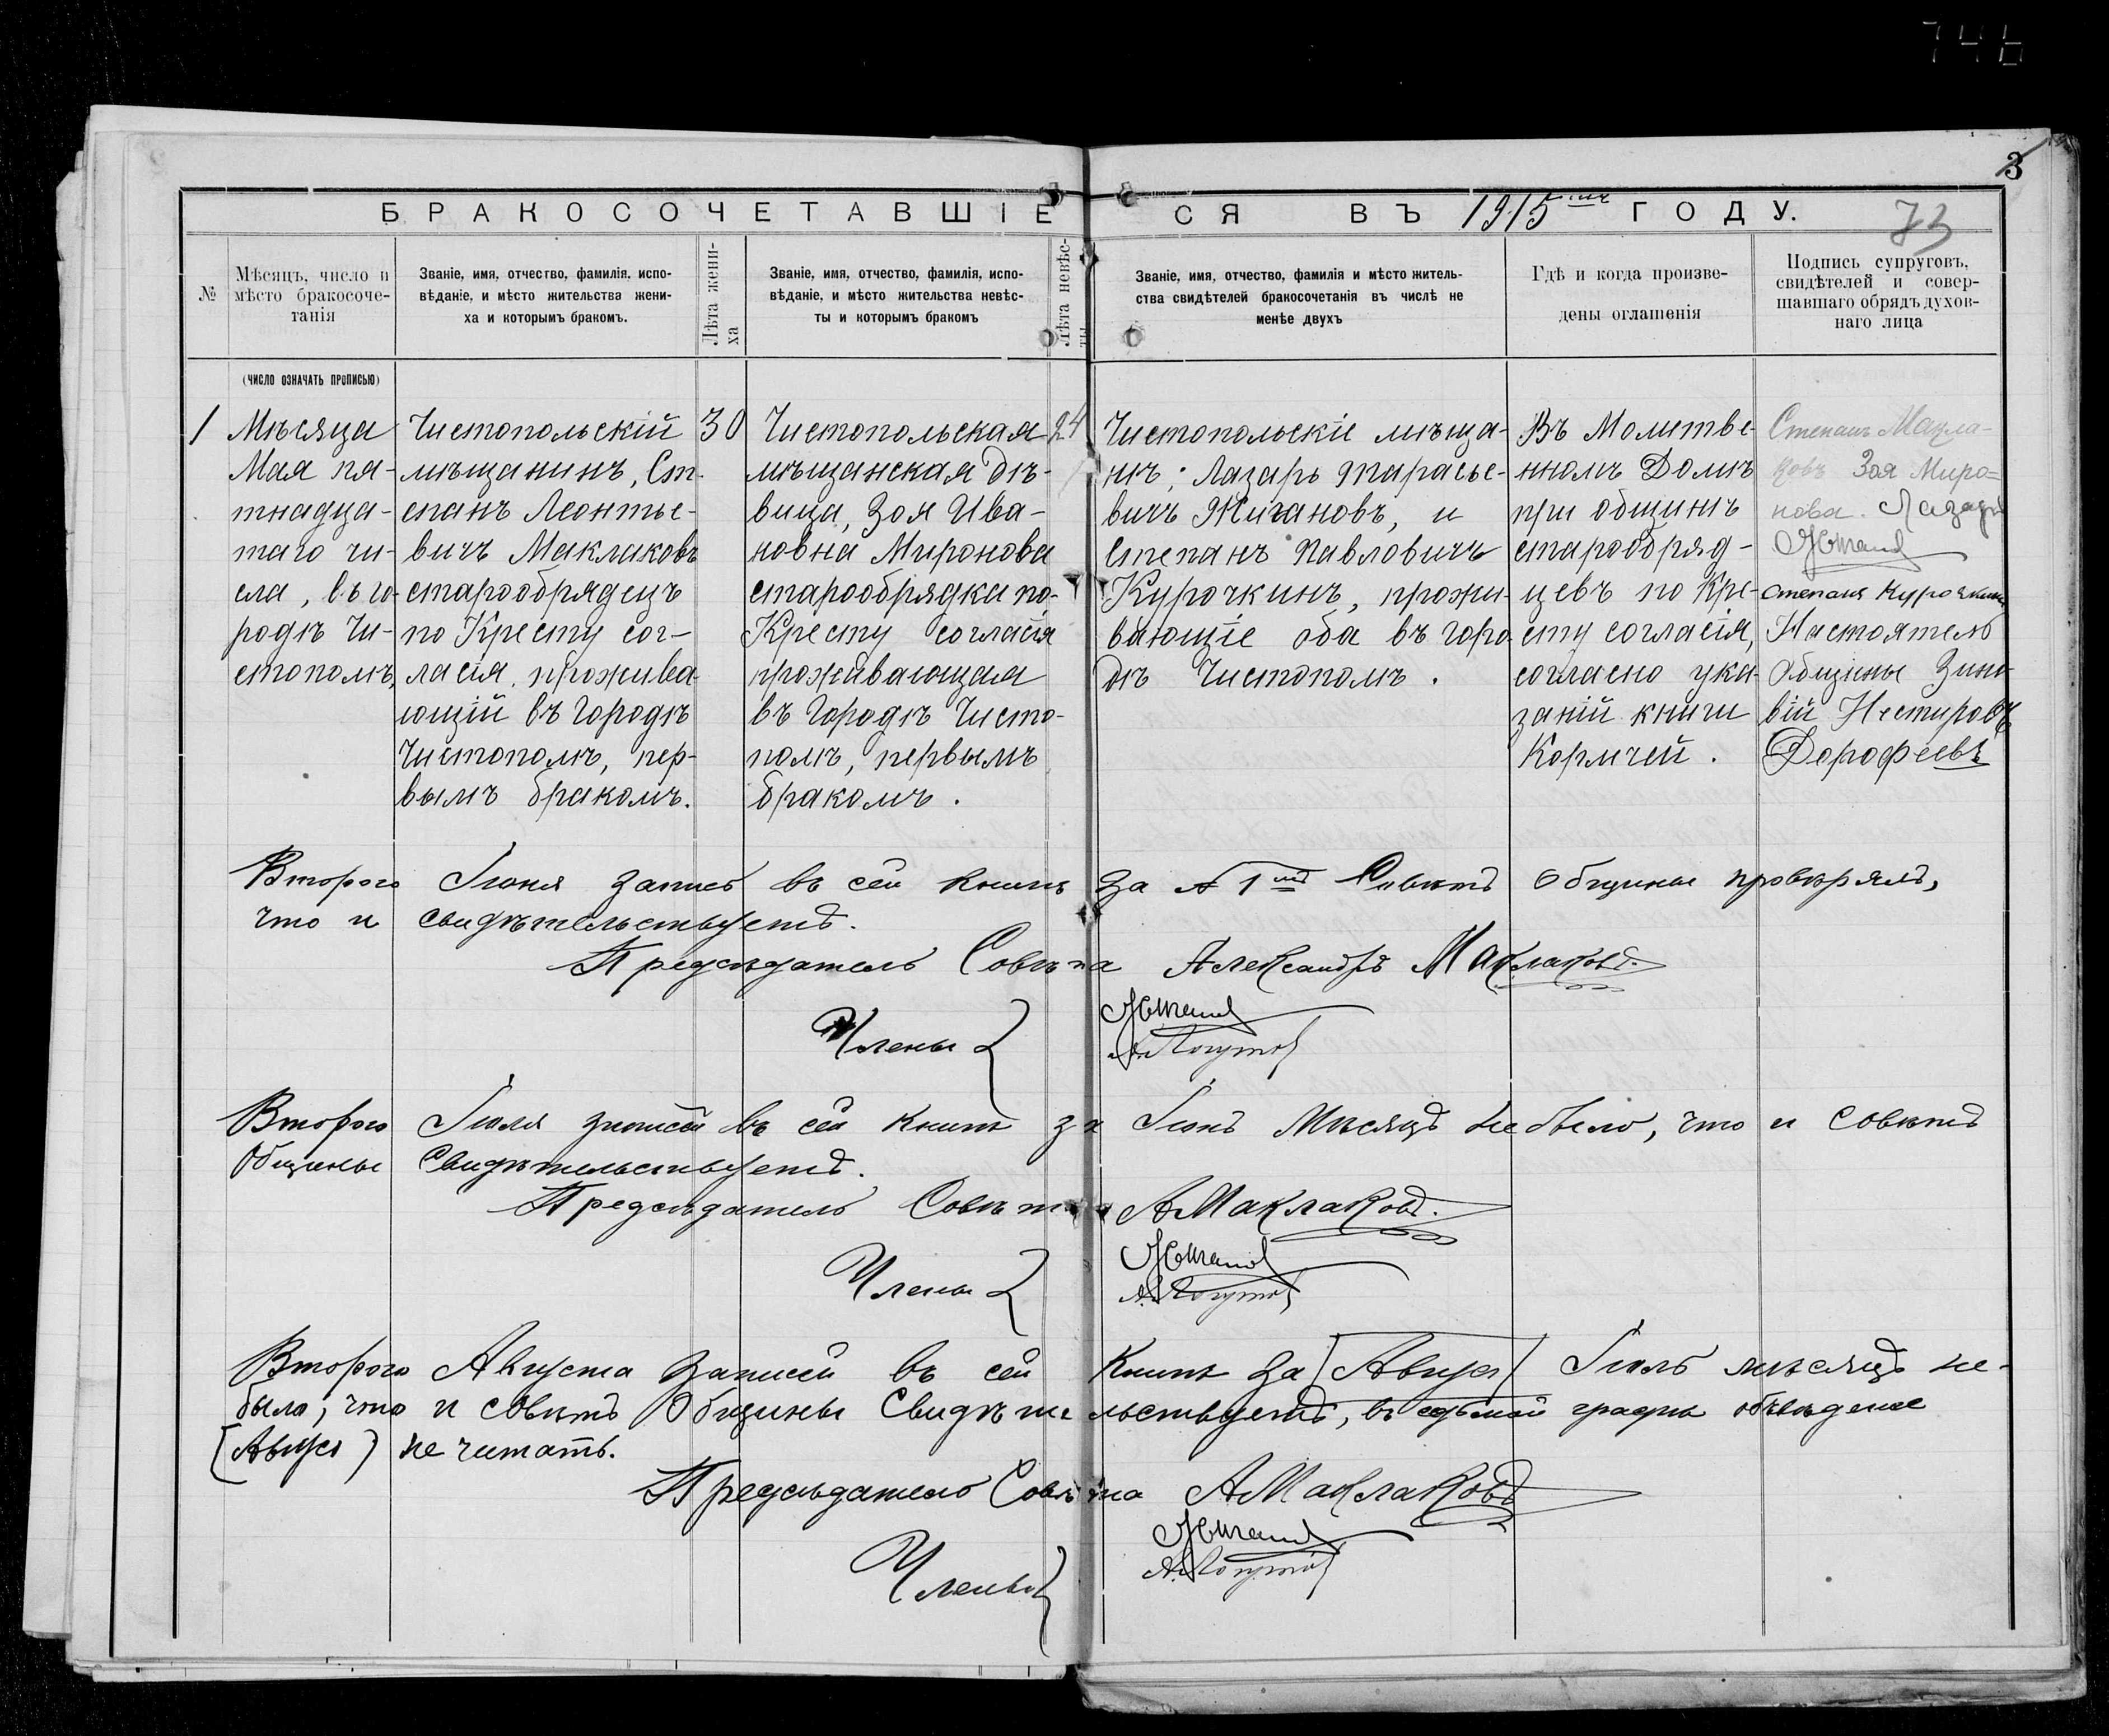 746
3
БРАКОСОЧЕТАВШІЕСЯ ВЪ 1915 ГОДУ.
73
№
Мѣсяцъ, число и
мѣсто бракосоче-
танія
Званіе, имя, отчество, фамилія, испо-
вѣданіе, и мѣсто жительства жени-
ха и которымъ бракомъ.
Лѣта жени-
ха
Званіе, имя, отчество, фамилія, испо-
вѣданіе, и мѣсто жительства невѣс-
ты и которымъ бракомъ
Лѣта невѣс-
ты
Званіе, имя, отчество, фамилія и мѣсто житель-
ства свидѣтелей бракосочетанія въ числѣ не
менѣе двухъ
Гдѣ и когда произве-
дены оглашенія
Подпись супруговъ,
свидѣтелей и совер-
шавшаго обрядъ духов-
наго лица
(ЧИСЛО ОЗНАЧАТЬ ПРОПИСЬЮ)
1
Мѣсяца
Мая пя-
тнадца-
таго чи-
сла, въ го-
родѣ Чи-
стополѣ,
Чистопольскій
мѣщанинъ, Ст-
епанъ Леонтье-
вичъ Маклаковъ
старообрядецъ
по Кресту сог-
ласія, прожива-
ющій въ Городѣ
Чистополѣ, пер-
вымъ бракомъ.
30
Чистопольская
мѣщанская дѣ-
вица, Зоя Ива-
новна Миронова
старообрядка по-
Кресту согласія
проживающая
въ Городѣ Чисто-
полѣ, первымъ
бракомъ.
24
Чистопольскіе мѣща-
нѣ; Лазарь Тарасье-
вичъ Жигановъ, и
Степанъ Павловичъ
Курочкинъ, прожи-
вающіе оба въ Горо-
дѣ Чистополѣ.
Въ Молитве-
нномъ Домѣ
при общинѣ
старообряд-
цевъ по Кре-
сту согласія,
согласно ука-
заній книги
Кормчей.
Степанъ Макла-
ковъ Зоя Миро-
нова. Лазарь
Жиганов
Степанъ Курочкинъ
Настоятель
Общины Зино-
вій Нестировъ
Дорофеевъ
Второго Іюня запись въ сей книгѣ за № 1мъ Совѣтъ Общины провѣрялъ,
что и свидѣтельствуетъ.
Предсѣдатель Совѣта Александръ Маклаковъ.
Члены
Жиганов
Второго Іюля записей въ сей книгѣ за Іюнь Мѣсяцъ не было, что и Совѣтъ
Общины Свидѣтельствуетъ.
Предсѣдатель Совѣта АМаклаковъ.
Члены
Жиганов
Второго Августа Записей въ сей Книгѣ за (Авгус) Іюль мѣсяцъ не-
было, что и совѣтъ Общины Свидѣтельствуетъ, въ седьмой графѣ обведеное
(Авгус) не читать.
Предсѣдатель Совѣта АМаклаковъ
Члены
Жиганов